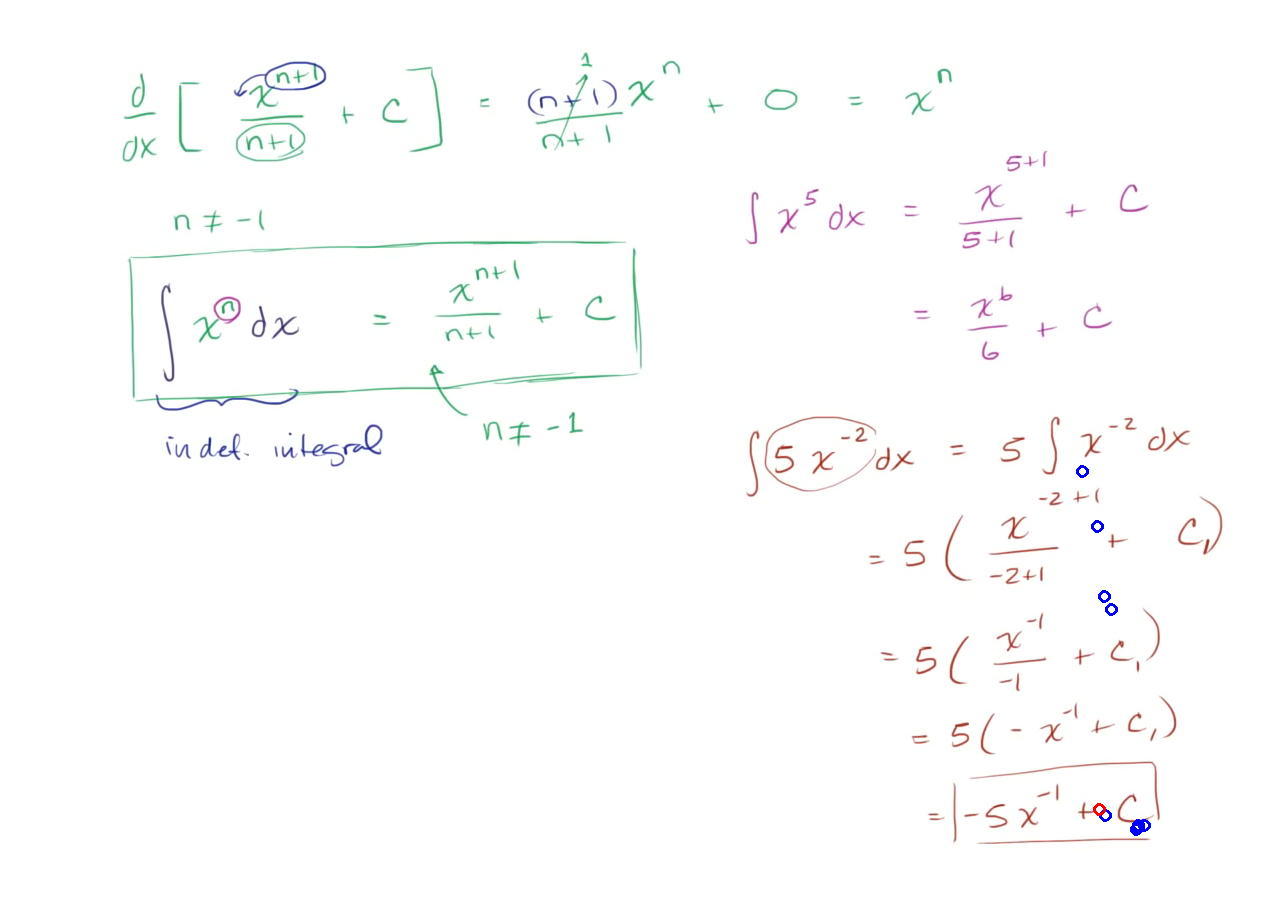 d/dx [ x^(n+1)/(n+1) + C ] = (n+1)/(n+1) x^n + 0 = x^n
1
n ≠ -1
∫ x^n dx = x^(n+1)/(n+1) + C
n ≠ -1
indef. integral
∫ x^5 dx = x^(5+1)/(5+1) + C
= x^6/6 + C
∫ 5 x^(-2) dx = 5 ∫ x^(-2) dx
= 5 ( x^(-2+1)/(-2+1) + C₁ )
= 5 ( x^(-1)/(-1) + C₁ )
= 5 ( - x^(-1) + C₁ )
= -5x^(-1) + C